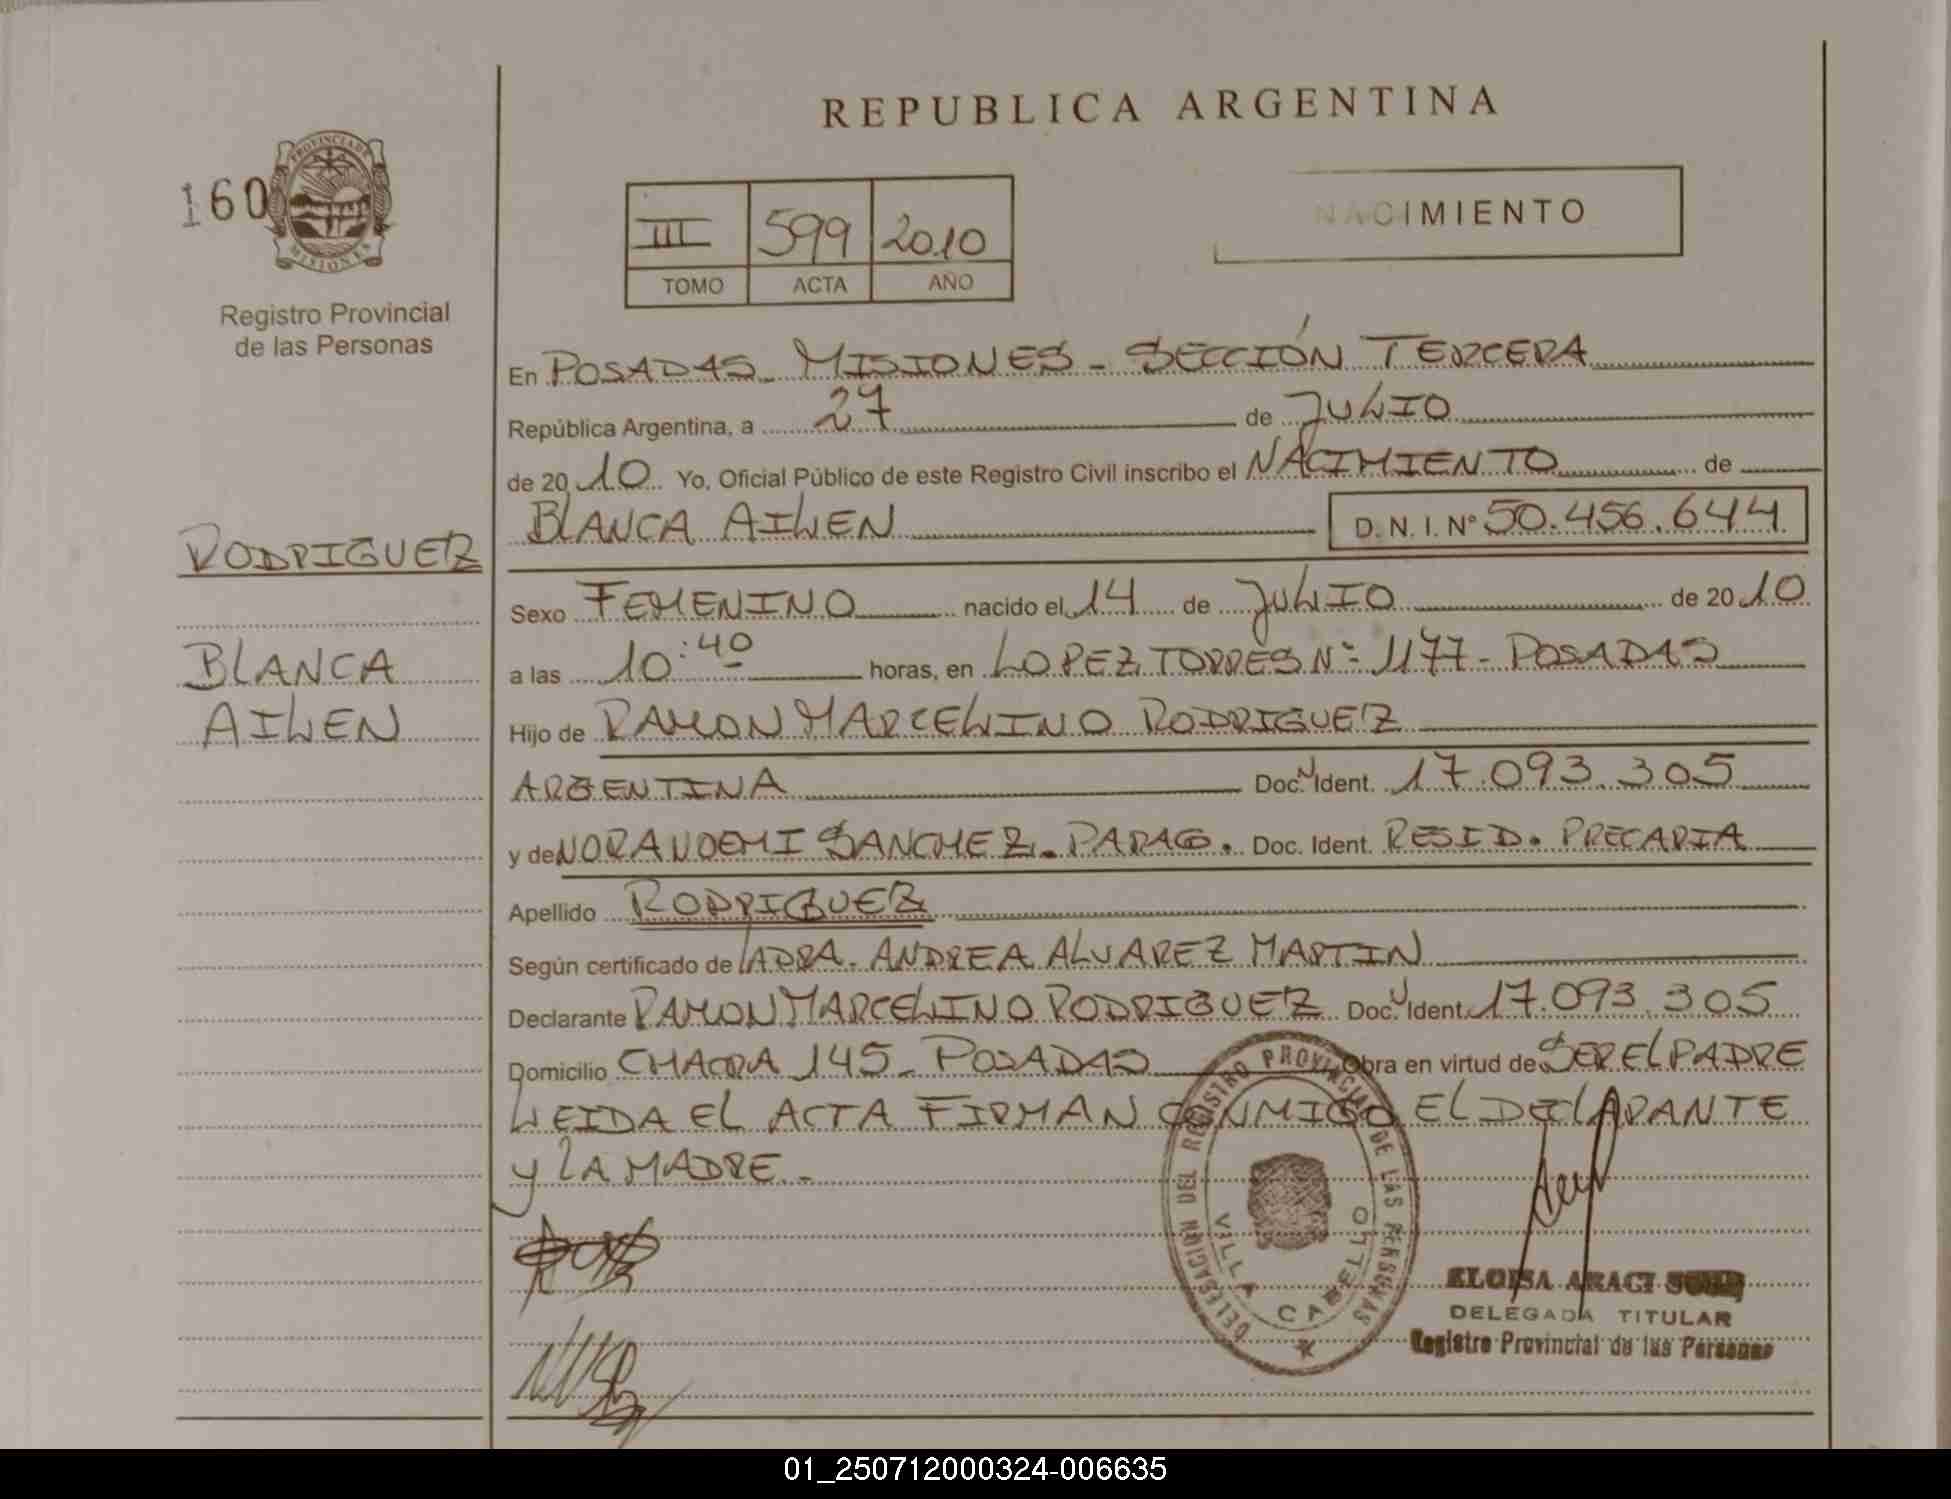 REPUBLICA ARGENTINA
160
PROVINCIA DE MISIONES
Registro Provincial
de las Personas
III 599 2010
TOMO ACTA AÑO
NACIMIENTO
En POSADAS - MISIONES - SECCIÓN TERCERA
República Argentina, a 27 de JULIO
de 2010 Yo, Oficial Público de este Registro Civil inscribo el NACIMIENTO de
BLANCA AILEN D. N. I. Nº 50.456.644
RODRIGUEZ
BLANCA
AILEN
Sexo FEMENINO nacido el 14 de JULIO de 2010
a las 10:40 horas, en LOPEZ TORRES Nº 1177 - POSADAS
Hijo de RAMON MARCELINO RODRIGUEZ
ARGENTINA Doc. Ident. 17.093.305
y de NORA NOEMI SANCHEZ - PARAG. Doc. Ident. RESID. PRECARIA
Apellido RODRIGUEZ
Según certificado de LA DRA. ANDREA ALVAREZ MARTIN
Declarante RAMON MARCELINO RODRIGUEZ Doc. Ident. 17.093.305
Domicilio CHACRA 145 - POSADAS Obra en virtud de SER EL PADRE
LEIDA EL ACTA FIRMAN CONMIGO EL DECLARANTE
Y LA MADRE.-
DELEGACION DEL REGISTRO PROVINCIAL DE LAS PERSONAS
VILLA CABELLO
ELOISA ARACI
DELEGADA TITULAR
Registro Provincial de las Personas
01_250712000324-006635